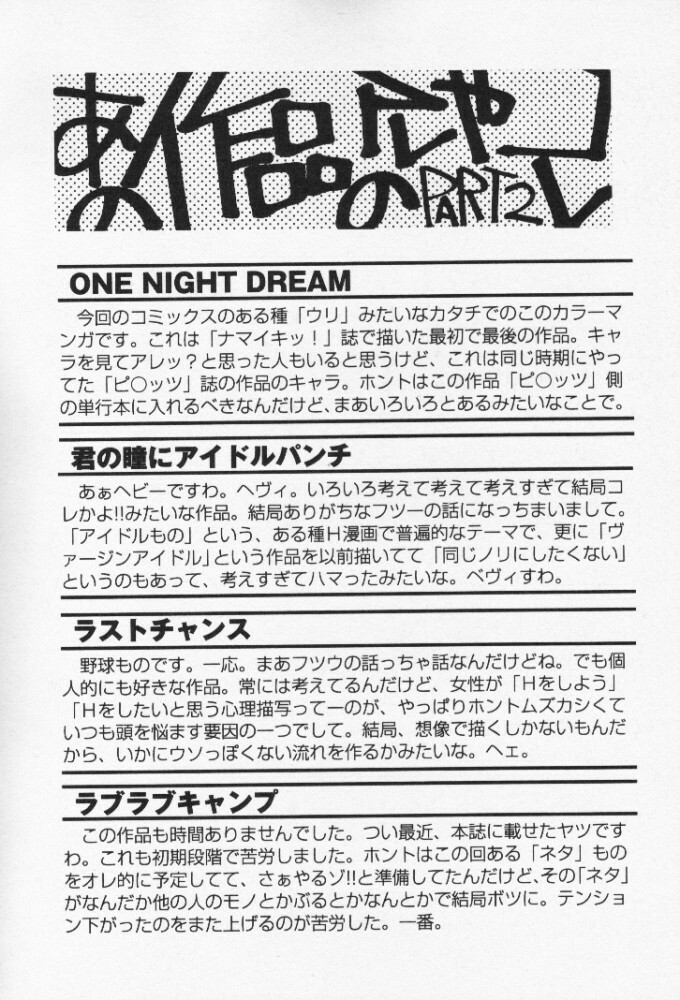 あの作品のアレやコレ PART2
ONE NIGHT DREAM
今回のコミックスのある種「ウリ」みたいなカタチでのこのカラーマ
ンガです。これは「ナマイキッ!」誌で描いた最初で最後の作品。キャ
ラを見てアレッ?と思った人もいると思うけど、これは同じ時期にやっ
てた「ピ○ッツ」誌の作品のキャラ。ホントはこの作品「ピ○ッツ」側
の単行本に入れるべきなんだけど、まあいろいろとあるみたいなことで。
君の瞳にアイドルパンチ
あぁヘビーですわ。ヘヴィ。いろいろ考えて考えて考えすぎて結局コ
レかよ!!みたいな作品。結局ありがちなフツーの話になっちまいまして。
「アイドルもの」という、ある種H漫画で普遍的なテーマで、更に「ヴ
ァージンアイドル」という作品を以前描いてて「同じノリにしたくない」
というのもあって、考えすぎてハマったみたいな。ベヴィすわ。
ラストチャンス
野球ものです。一応。まあフツウの話っちゃ話なんだけどね。でも個
人的にも好きな作品。常には考えてるんだけど、女性が「Hをしよう」
「Hをしたいと思う心理描写ってーのが、やっぱりホントムズカシくて
いつも頭を悩ます要因の一つでして。結局、想像で描くしかないもんだ
から、いかにウソっぽくない流れを作るかみたいな。ヘェ。
ラブラブキャンプ
この作品も時間ありませんでした。つい最近、本誌に載せたヤツです
わ。これも初期段階で苦労しました。ホントはこの回ある「ネタ」もの
をオレ的に予定してて、さぁやるゾ!!と準備してたんだけど、その「ネタ」
がなんだか他の人のモノとかぶるとかなんとかで結局ボツに。テンショ
ン下がったのをまた上げるのが苦労した。一番。